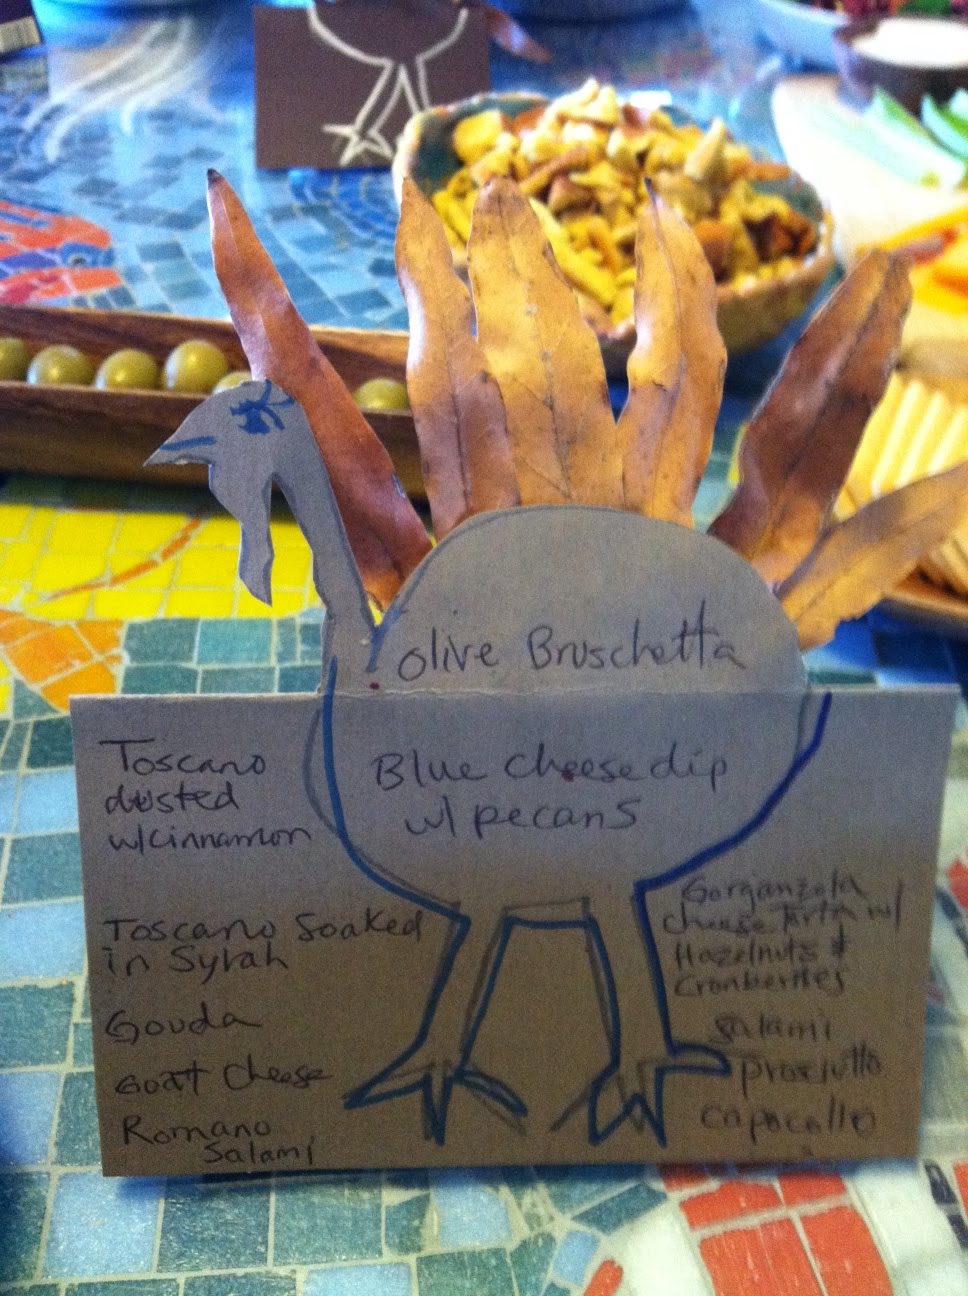 olive Bruschetta
Blue cheese dip
w/ pecans
Toscano
dusted
w/cinnamon
Toscano Soaked
in Syrah
Gouda
Goat Cheese
Romano
Salami
Gorganzola
cheese Torta w/
Hazelnuts &
Cranberries
Salami
Prosciutto
Capocollo